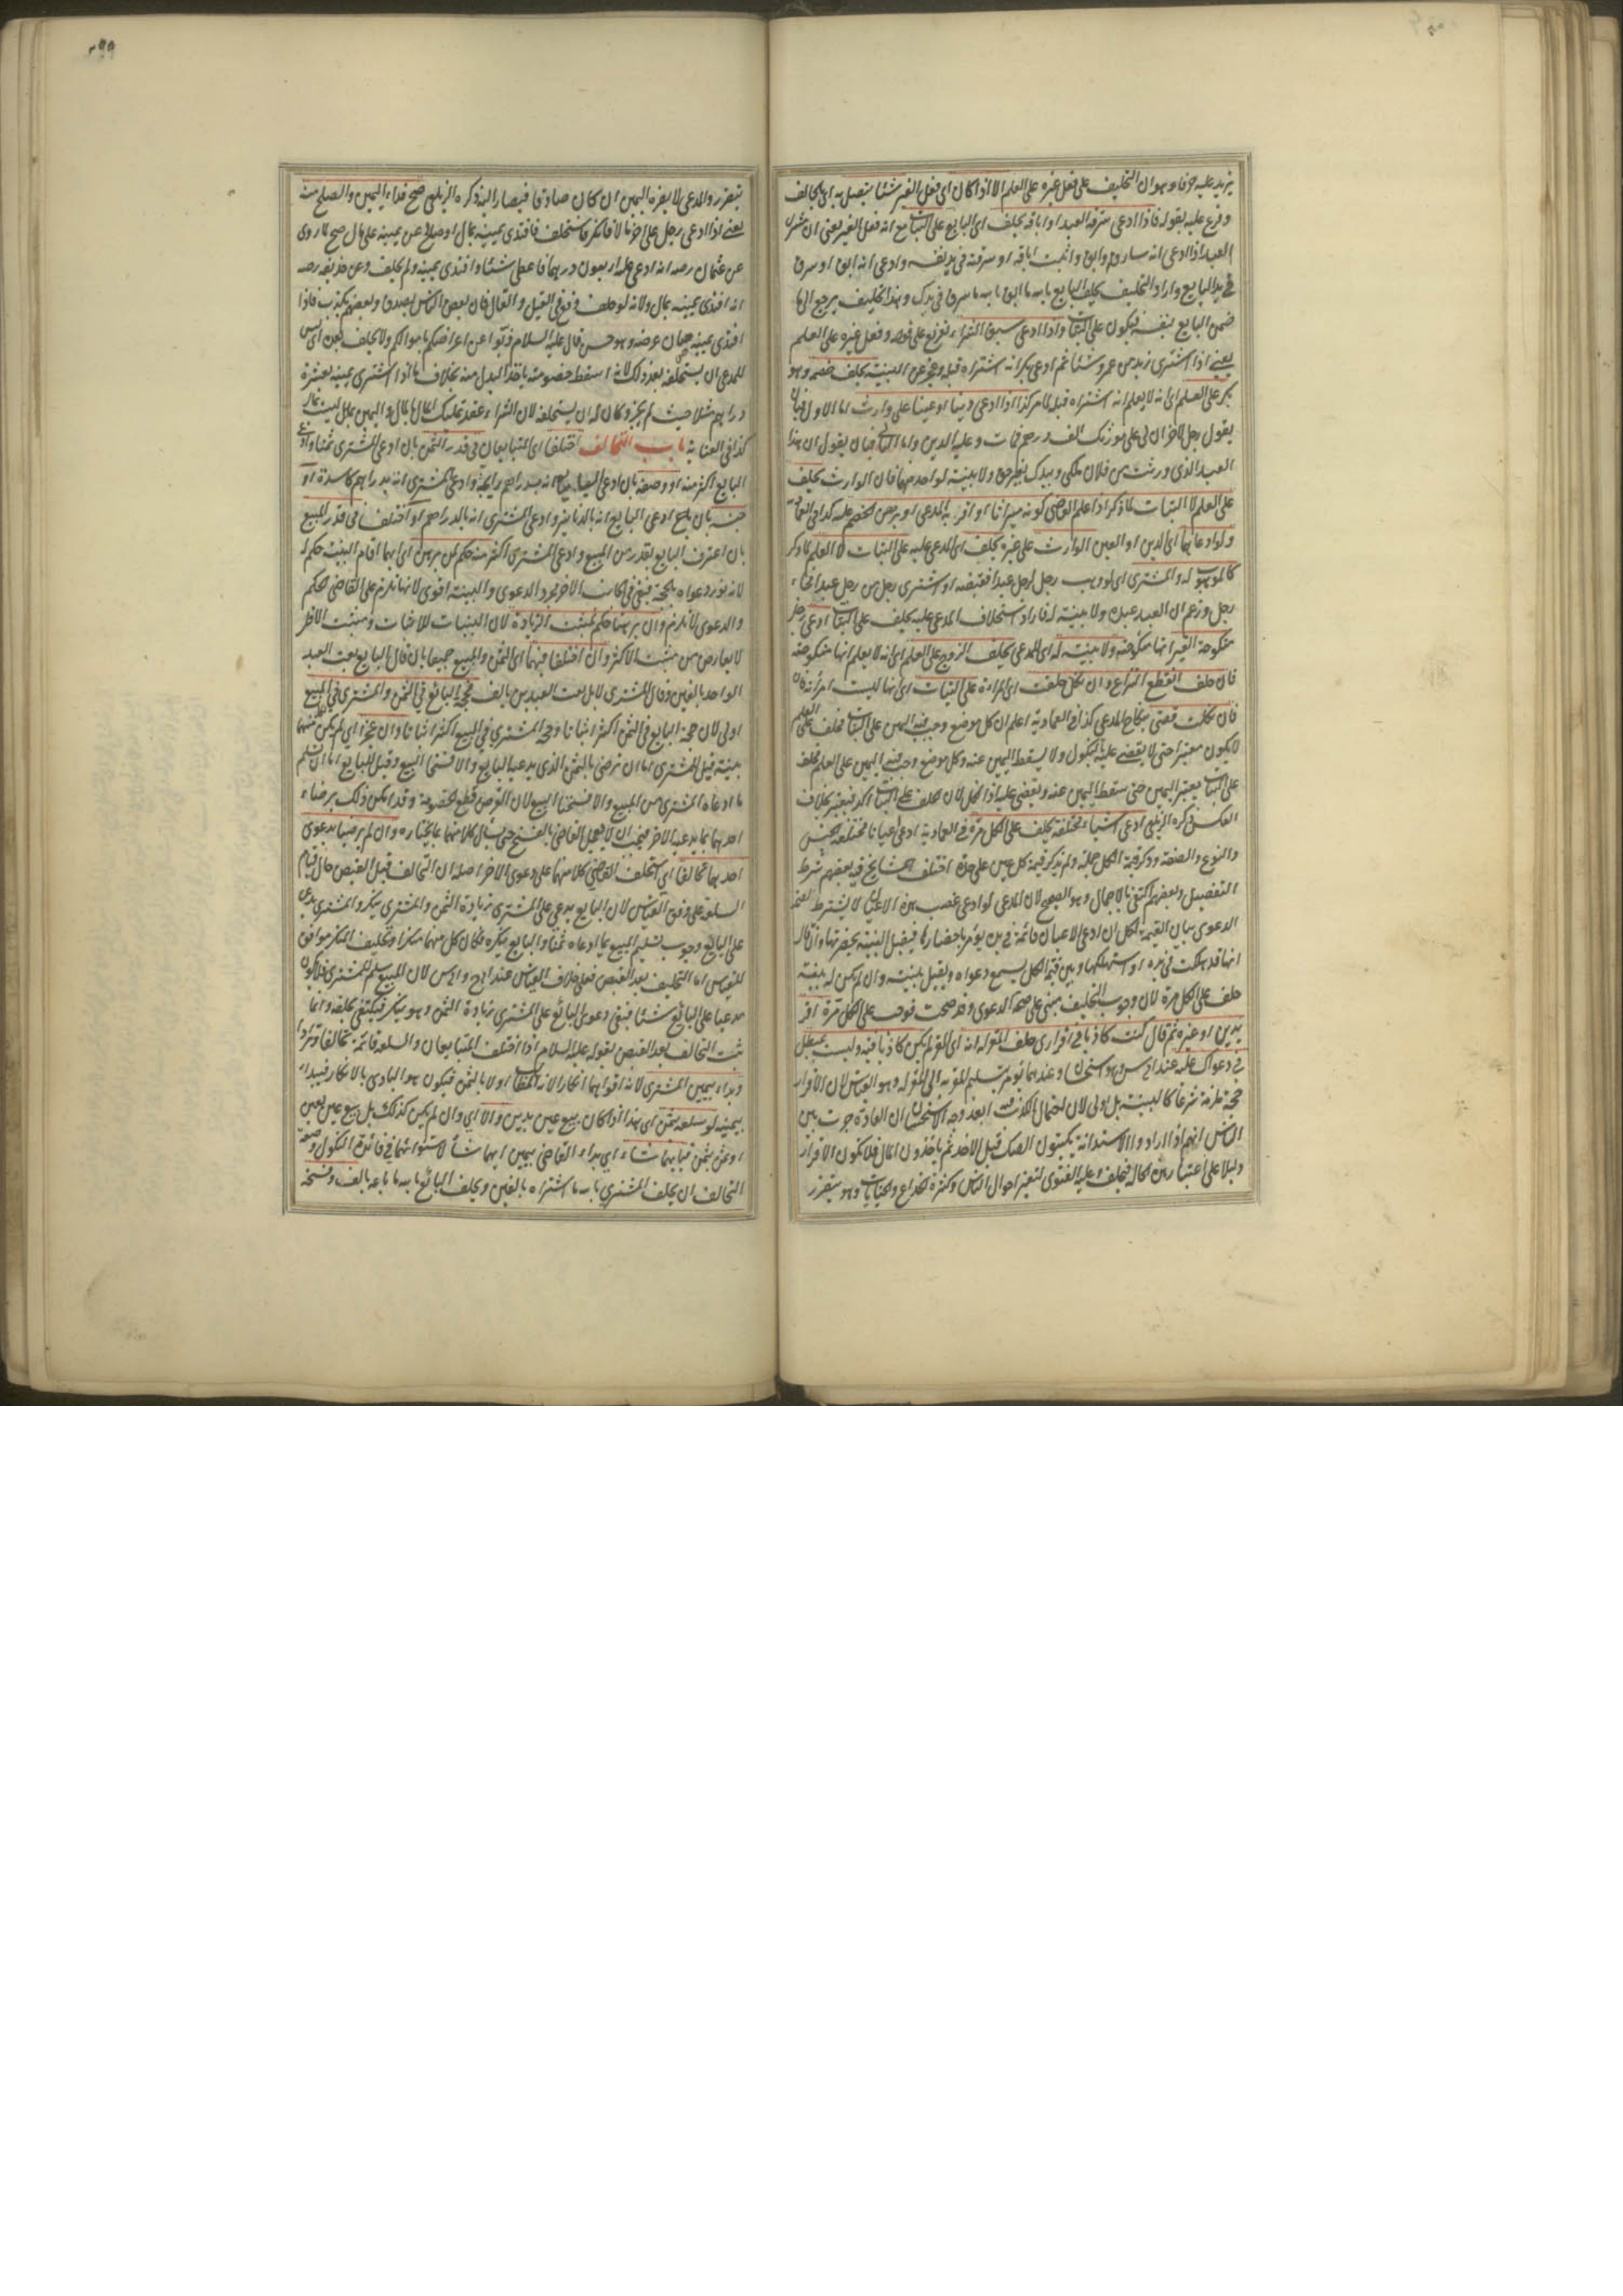 يزيد عليه حرفا وهو ان التحليف على فعل غيره على العلم الا اذا كان اي فعل الغير شيئا يتصل به اي بالحالف
وفرع عليه بقوله فاذا ادعى سرقة العبد او اباقه يحلف اي البايع على البتات مع انه فعل الغير يعني ان مشتري
العبد اذا ادعى انه سارق او ابق واثبت اباقه او سرقته في يد نفسه وادعى انه ابق او سرق
في يد البايع واراد التحليف يحلف البايع بالله ما ابق بالله ما سرق في يدك وهذا تحليف يرجع الى ما
ضمن البايع بنفسه فيكون على البتات واذا ادعى سبق الشراء تفريع على قوله وفعل غيره على العلم
يعني اذا اشترى زيد من عمرو شيئا ثم ادعى بكر انه اشتراه قبله وعجز عن البينة يحلف خصمه وهو
بكر على العلم اي انه لا يعلم انه اشتراه قبله لما مر كذا اذا ادعى دينا او عينا على وارث اما الاول فبان
يقول رجل لاخر ان لي على مورثك الف درهم فمات وعليه الدين واما الثاني فبان يقول ان هذا
العبد الذي ورثته من فلان ملكي وبيدك بغير حق ولا بينة لواحد منهما فان الوارث يحلف
على العلم لا البتات لما ذكر اذا علم القاضي كونه ميراثا او اقر به المدعي او برهن الخصم عليه كذا في العمادية
ولو ادعاهما اي الدين او العين الوارث على غيره يحلف اي المدعى عليه على البتات لا العلم لما ذكر
كالموهوب له والمشتري اي لو وهب رجل لرجل عبدا فقبضه او اشترى رجل من رجل عبدا فجاء
رجل وزعم ان العبد عبده ولا بينة له فاراد استحلاف المدعى عليه يحلف على البتات ادعى رجل
منكوحة الغير انها منكوحته ولا بينة له اي للمدعي يحلف الزوج على العلم اي انه لا يعلم انها منكوحته
فان حلف انقطع النزاع وان نكل حلفت اي المراة على البتات اي انها ليست امراته
فان نكلت قضي بنكاح المدعي كذا في العمادية اعلم ان كل موضع وجب فيه اليمين على البتات فحلف على العلم
لا يكون معتبرا حتى لا يقضى عليه بالنكول ولا يسقط اليمين عنه وكل موضع وجب فيه اليمين على العلم فحلف
على البتات يعتبر اليمين حتى سقط اليمين عنه ويقضى عليه اذا نكل لان الحلف على البتات اكد فيعتبر بخلاف
العكس ذكره الزيلعي ادعى اشياء مختلفة يحلف على الكل مرة في العمادية ادعى اعيانا مختلفة الجنس
والنوع والصفة وذكر قيمة الكل جملة ولم يذكر قيمة كل عين على حدة اختلف المشايخ فيه بعضهم شرط
التفصيل وبعضهم اكتفى بالاجمال وهو الصحيح لان المدعي لو ادعى غصب هذه الاعيان لا يشترط لصحة
الدعوى بيان القيمة لكل ان ادعى الاعيان قائمة في يده يؤمر باحضارها فيقبل البينة بحضرتها وان قال
انها قد هلكت في يده او استهلكها وبين قيمة الكل يسمع دعواه ويقبل بينته وان لم يكن له بينة
حلف على الكل مرة لان وجوب التحليف مبني على صحة الدعوى وقد صحت فوجب على الكل مرة اقر
بدين او غيره ثم قال كنت كاذبا في اقراري حلف المقر له انه اي المقر لم يكن كاذبا فيه ولست بمبطل
في دعواك عليه عند ابي س وهو استحسان وعندهما يؤمر بتسليم المقر به الى المقر له وهو القياس لان الاقرار
حجة ملزمة شرعا كالبينة بل اولى لان احتمال الكذب فيه ابعد وجه الاستحسان ان العادة جرت بين
الناس انهم اذا ارادوا الاستدانة يكتبون الصك قبل الاخذ ثم ياخذون المال فلا يكون الاقرار
دليلا على اعتبار هذه الحالة فيحلف وعليه الفتوى لتغير احوال الناس وكثرة الخداع والخيانات وهو يتضرر
٣٩٩
يتضرر والمدعي لا يضره اليمين ان كان صادقا فيصار اليه ذكره الزيلعي صح فداء اليمين والصلح منه
يعني اذا ادعى رجل على اخر مالا فانكر فاستحلف فافتدى يمينه بمال او صالح عن يمينه على مال صح لما روي
عن عثمان رضه انه ادعي عليه اربعون درهما فاعطى شيئا وافتدى يمينه ولم يحلف وعن حذيفة رضه
انه افتدى يمينه بمال ولانه لو حلف وقع في القيل والقال فان بعض الناس يصدق وبعضهم يكذب فاذا
افتدى يمينه صان عرضه وهو حسن قال عليه السلام ذبوا عن اعراضكم باموالكم ولا يحلف بعده اي ليس
للمدعي ان يستحلفه بعد ذلك لانه اسقط خصومته باخذ البدل منه بخلاف ما اذا اشترى يمينه بعشرة
دراهم مثلا حيث لم يجز وكان له ان يستحلفه لان الشراء عقد تمليك المال بالمال واليمين ليست بمال
كذا في العناية باب التحالف اختلفا اي المتبايعان في قدر الثمن بان ادعى المشتري ثمنا وادعى
البايع اكثر منه او وصفه بان ادعى البايع انه بدراهم رايجة وادعى المشتري انه بدراهم كاسدة او
جنسه بان ادعى البايع انه بالدنانير وادعى المشتري انه بالدراهم او اختلفا في قدر المبيع
بان اعترف البايع بقدر من المبيع وادعى المشتري اكثر منه حكم لمن برهن اي ايهما اقام البينة حكم له
لانه نور دعواه بالحجة فبقي في الجانب الاخر مجرد الدعوى والبينة اقوى لانها تلزم على القاضي الحكم
والدعوى لا تلزم وان برهنا حكم لمثبت الزيادة لان البينات للاثبات ومثبت الاقل
لا يعارض مثبت الاكثر وان اختلفا فيهما اي الثمن والمبيع جميعا بان قال البايع بعت العبد
الواحد بالفين وقال المشتري لا بل بعت العبدين بالف فحجة البائع في الثمن والمشتري في المبيع
اولى لان حجة البايع في الثمن اكثر اثباتا وحجة المشتري في المبيع اكثر اثباتا وان عجزا اي لم يكن لكل منهما
بينة قيل للمشتري اما ان ترضى بالثمن الذي يدعيه البايع والا فسخنا البيع وقيل للبايع اما ان تسلم
ما ادعاه المشتري من المبيع والا فسخنا البيع لان الغرض قطع الخصومة وقد امكن ذلك برضاء
احدهما بما يدعيه الاخر فيجب ان لا يعجل القاضي بالفسخ حتى يسأل كلا منهما بما يختاره وان لم يرضيا بدعوى
احدهما تحالفا اي استحلف القاضي كلا منهما على دعوى الاخر اصله ان التحالف قبل القبض حال قيام
السلعة على وفق القياس لان البايع يدعي على المشتري زيادة الثمن والمشتري ينكر والمشتري يدعي
على البايع وجوب تسليم المبيع بما ادعاه ثمنا والبايع ينكره فكان كل منهما منكرا وتحليف المنكر موافق
للقياس اما التحليف بعد القبض فعلى خلاف القياس عند ابي ح وابي س لان المبيع سلم للمشتري فلا يكون
مدعيا على البائع شيئا فبقي دعوى البائع على المشتري زيادة الثمن وهو ينكر فيكتفى بحلفه وانما
ثبت التحالف بعد القبض بقوله عليه السلام اذا اختلف المتبايعان والسلعة قائمة تحالفا وترادا
وبداء بيمين المشتري لانه اقواهما انكارا لانه المطالب اولا بالثمن فيكون هو البادي بالانكار فيبداء
بيمينه لو سلعة بثمن اي هذا اذا كان بيع عين بدين والا اي وان لم يكن كذلك بل بيع عين بعين
او ثمن بثمن فبايهما شاء اي بداء القاضي بيمين ايهما شاء لاستوائهما في فائدة النكول وصفة
التحالف ان يحلف المشتري بالله ما اشتراه بالفين ويحلف البائع بالله ما باعه بالف وفسخه